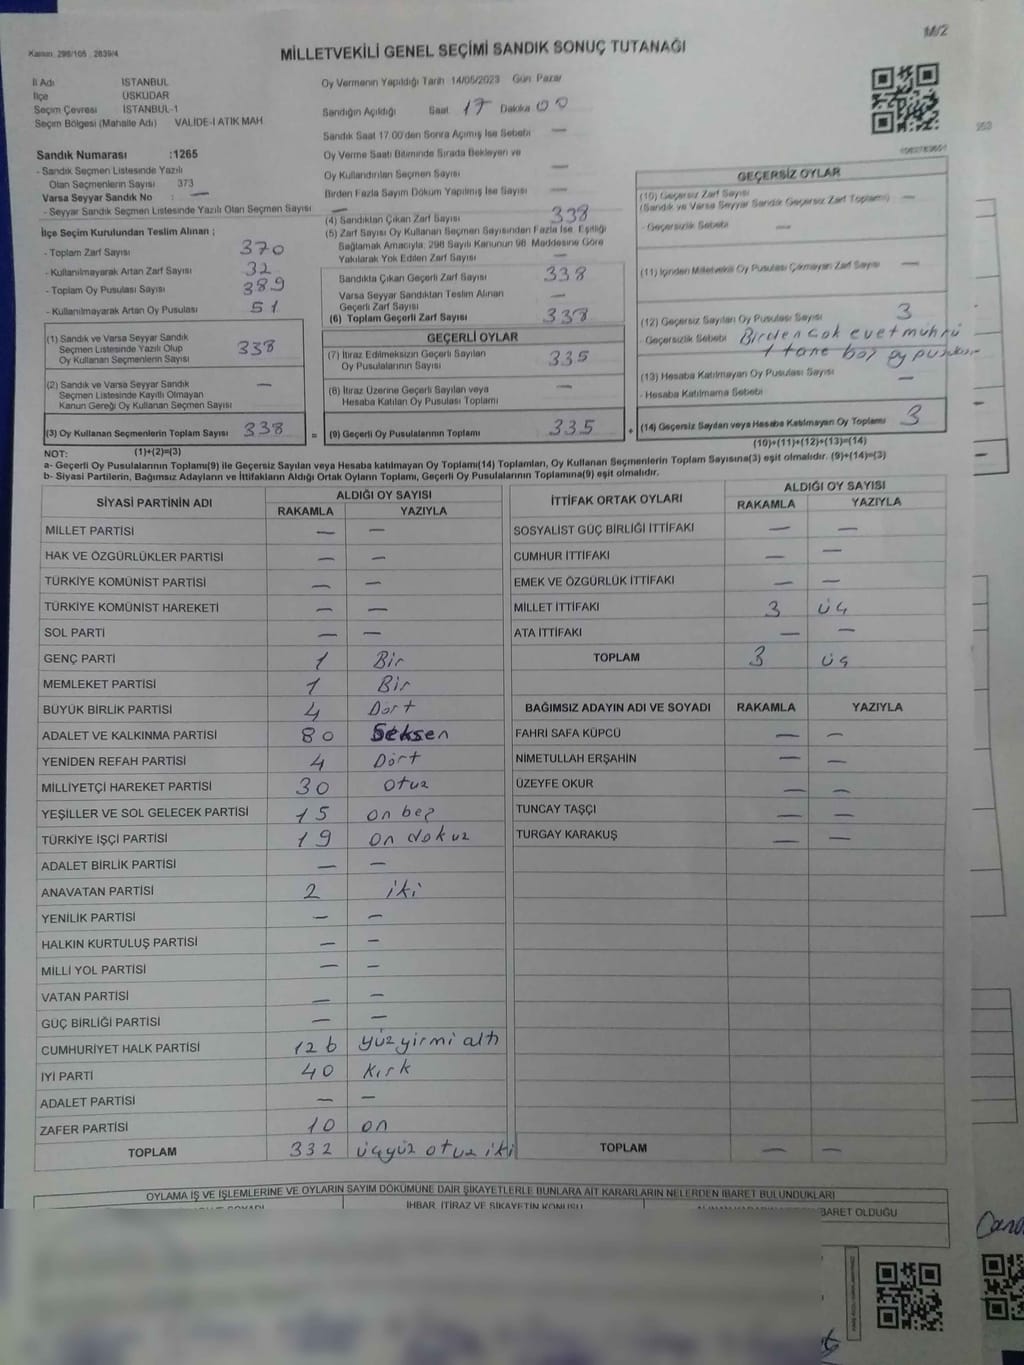 M/2
Kanun: 298/105 , 2839/4
MİLLETVEKİLİ GENEL SEÇİMİ SANDIK SONUÇ TUTANAĞI
İl Adı İSTANBUL
İlçe ÜSKÜDAR
Seçim Çevresi İSTANBUL-1
Seçim Bölgesi (Mahalle Adı) VALİDE-İ ATİK MAH
Sandık Numarası :1265
- Sandık Seçmen Listesinde Yazılı
Olan Seçmenlerin Sayısı 373
Varsa Seyyar Sandık No : —
- Seyyar Sandık Seçmen Listesinde Yazılı Olan Seçmen Sayısı —
İlçe Seçim Kurulundan Teslim Alınan ;
- Toplam Zarf Sayısı 370
- Kullanılmayarak Artan Zarf Sayısı 32
- Toplam Oy Pusulası Sayısı 389
- Kullanılmayarak Artan Oy Pusulası 51
(1) Sandık ve Varsa Seyyar Sandık
Seçmen Listesinde Yazılı Olup
Oy Kullanan Seçmenlerin Sayısı 338
(2) Sandık ve Varsa Seyyar Sandık
Seçmen Listesinde Kayıtlı Olmayan
Kanun Gereği Oy Kullanan Seçmen Sayısı —
(3) Oy Kullanan Seçmenlerin Toplam Sayısı 338 =
Oy Vermenin Yapıldığı Tarih 14/05/2023 Gün Pazar
Sandığın Açıldığı Saat 17 Dakika 00
Sandık Saat 17:00'den Sonra Açımış İse Sebebi —
Oy Verme Saati Bitiminde Sırada Bekleyen ve
Oy Kullandırılan Seçmen Sayısı —
Birden Fazla Sayım Döküm Yapılmış İse Sayısı —
(4) Sandıktan Çıkan Zarf Sayısı 338
(5) Zarf Sayısı Oy Kullanan Seçmen Sayısından Fazla İse, Eşitliği
Sağlamak Amacıyla; 298 Sayılı Kanunun 98. Maddesine Göre
Yakılarak Yok Edilen Zarf Sayısı —
Sandıkta Çıkan Geçerli Zarf Sayısı 338
Varsa Seyyar Sandıktan Teslim Alınan
Geçerli Zarf Sayısı —
(6) Toplam Geçerli Zarf Sayısı 338
GEÇERLİ OYLAR
(7) İtiraz Edilmeksizin Geçerli Sayılan
Oy Pusulalarının Sayısı 335
(8) İtiraz Üzerine Geçerli Sayılan veya
Hesaba Katılan Oy Pusulası Toplamı —
(9) Geçerli Oy Pusulalarının Toplamı 335 +
GEÇERSİZ OYLAR
(10) Geçersiz Zarf Sayısı
(Sandık ve Varsa Seyyar Sandık Geçersiz Zarf Toplamı) —
- Geçersizlik Sebebi —
(11) İçinden Milletvekili Oy Pusulası Çıkmayan Zarf Sayısı —
(12) Geçersiz Sayılan Oy Pusulası Sayısı 3
Geçersizlik Sebebi Birden çok evet mührü
1 tane boş oy pusulası
(13) Hesaba Katılmayan Oy Pusulası Sayısı —
- Hesaba Katılmama Sebebi
(14) Geçersiz Sayılan veya Hesaba Katılmayan Oy Toplamı 3
NOT: (1)+(2)=(3) (10)+(11)+(12)+(13)=(14)
a- Geçerli Oy Pusulalarının Toplamı(9) ile Geçersiz Sayılan veya Hesaba katılmayan Oy Toplamı(14) Toplamları, Oy Kullanan Seçmenlerin Toplam Sayısına(3) eşit olmalıdır. (9)+(14)=(3)
b- Siyasi Partilerin, Bağımsız Adayların ve İttifakların Aldığı Ortak Oyların Toplamı, Geçerli Oy Pusulalarının Toplamına(9) eşit olmalıdır.
SİYASİ PARTİNİN ADI ALDIĞI OY SAYISI
RAKAMLA YAZIYLA
MİLLET PARTİSİ — —
HAK VE ÖZGÜRLÜKLER PARTİSİ — —
TÜRKİYE KOMÜNİST PARTİSİ — —
TÜRKİYE KOMÜNİST HAREKETİ — —
SOL PARTİ — —
GENÇ PARTİ 1 Bir
MEMLEKET PARTİSİ 1 Bir
BÜYÜK BİRLİK PARTİSİ 4 Dört
ADALET VE KALKINMA PARTİSİ 80 Seksen
YENİDEN REFAH PARTİSİ 4 Dört
MİLLİYETÇİ HAREKET PARTİSİ 30 Otuz
YEŞİLLER VE SOL GELECEK PARTİSİ 15 on beş
TÜRKİYE İŞÇİ PARTİSİ 19 on dokuz
ADALET BİRLİK PARTİSİ — —
ANAVATAN PARTİSİ 2 iki
YENİLİK PARTİSİ — —
HALKIN KURTULUŞ PARTİSİ — —
MİLLİ YOL PARTİSİ — —
VATAN PARTİSİ — —
GÜÇ BİRLİĞİ PARTİSİ — —
CUMHURİYET HALK PARTİSİ 126 yüz yirmi altı
İYİ PARTİ 40 kırk
ADALET PARTİSİ — —
ZAFER PARTİSİ 10 on
TOPLAM 332 üçyüz otuz iki
İTTİFAK ORTAK OYLARI ALDIĞI OY SAYISI
RAKAMLA YAZIYLA
SOSYALİST GÜÇ BİRLİĞİ İTTİFAKI — —
CUMHUR İTTİFAKI — —
EMEK VE ÖZGÜRLÜK İTTİFAKI — —
MİLLET İTTİFAKI 3 üç
ATA İTTİFAKI — —
TOPLAM 3 üç
BAĞIMSIZ ADAYIN ADI VE SOYADI RAKAMLA YAZIYLA
FAHRİ SAFA KÜPCÜ — —
NİMETULLAH ERŞAHİN — —
ÜZEYFE OKUR — —
TUNCAY TAŞÇI — —
TURGAY KARAKUŞ — —
TOPLAM — —
OYLAMA İŞ VE İŞLEMLERİNE VE OYLARIN SAYIM DÖKÜMÜNE DAİR ŞİKAYETLERLE BUNLARA AİT KARARLARIN NELERDEN İBARET BULUNDUKLARI
İHBAR, İTİRAZ VE ŞİKAYETİN KONUSU
İBARET OLDUĞU